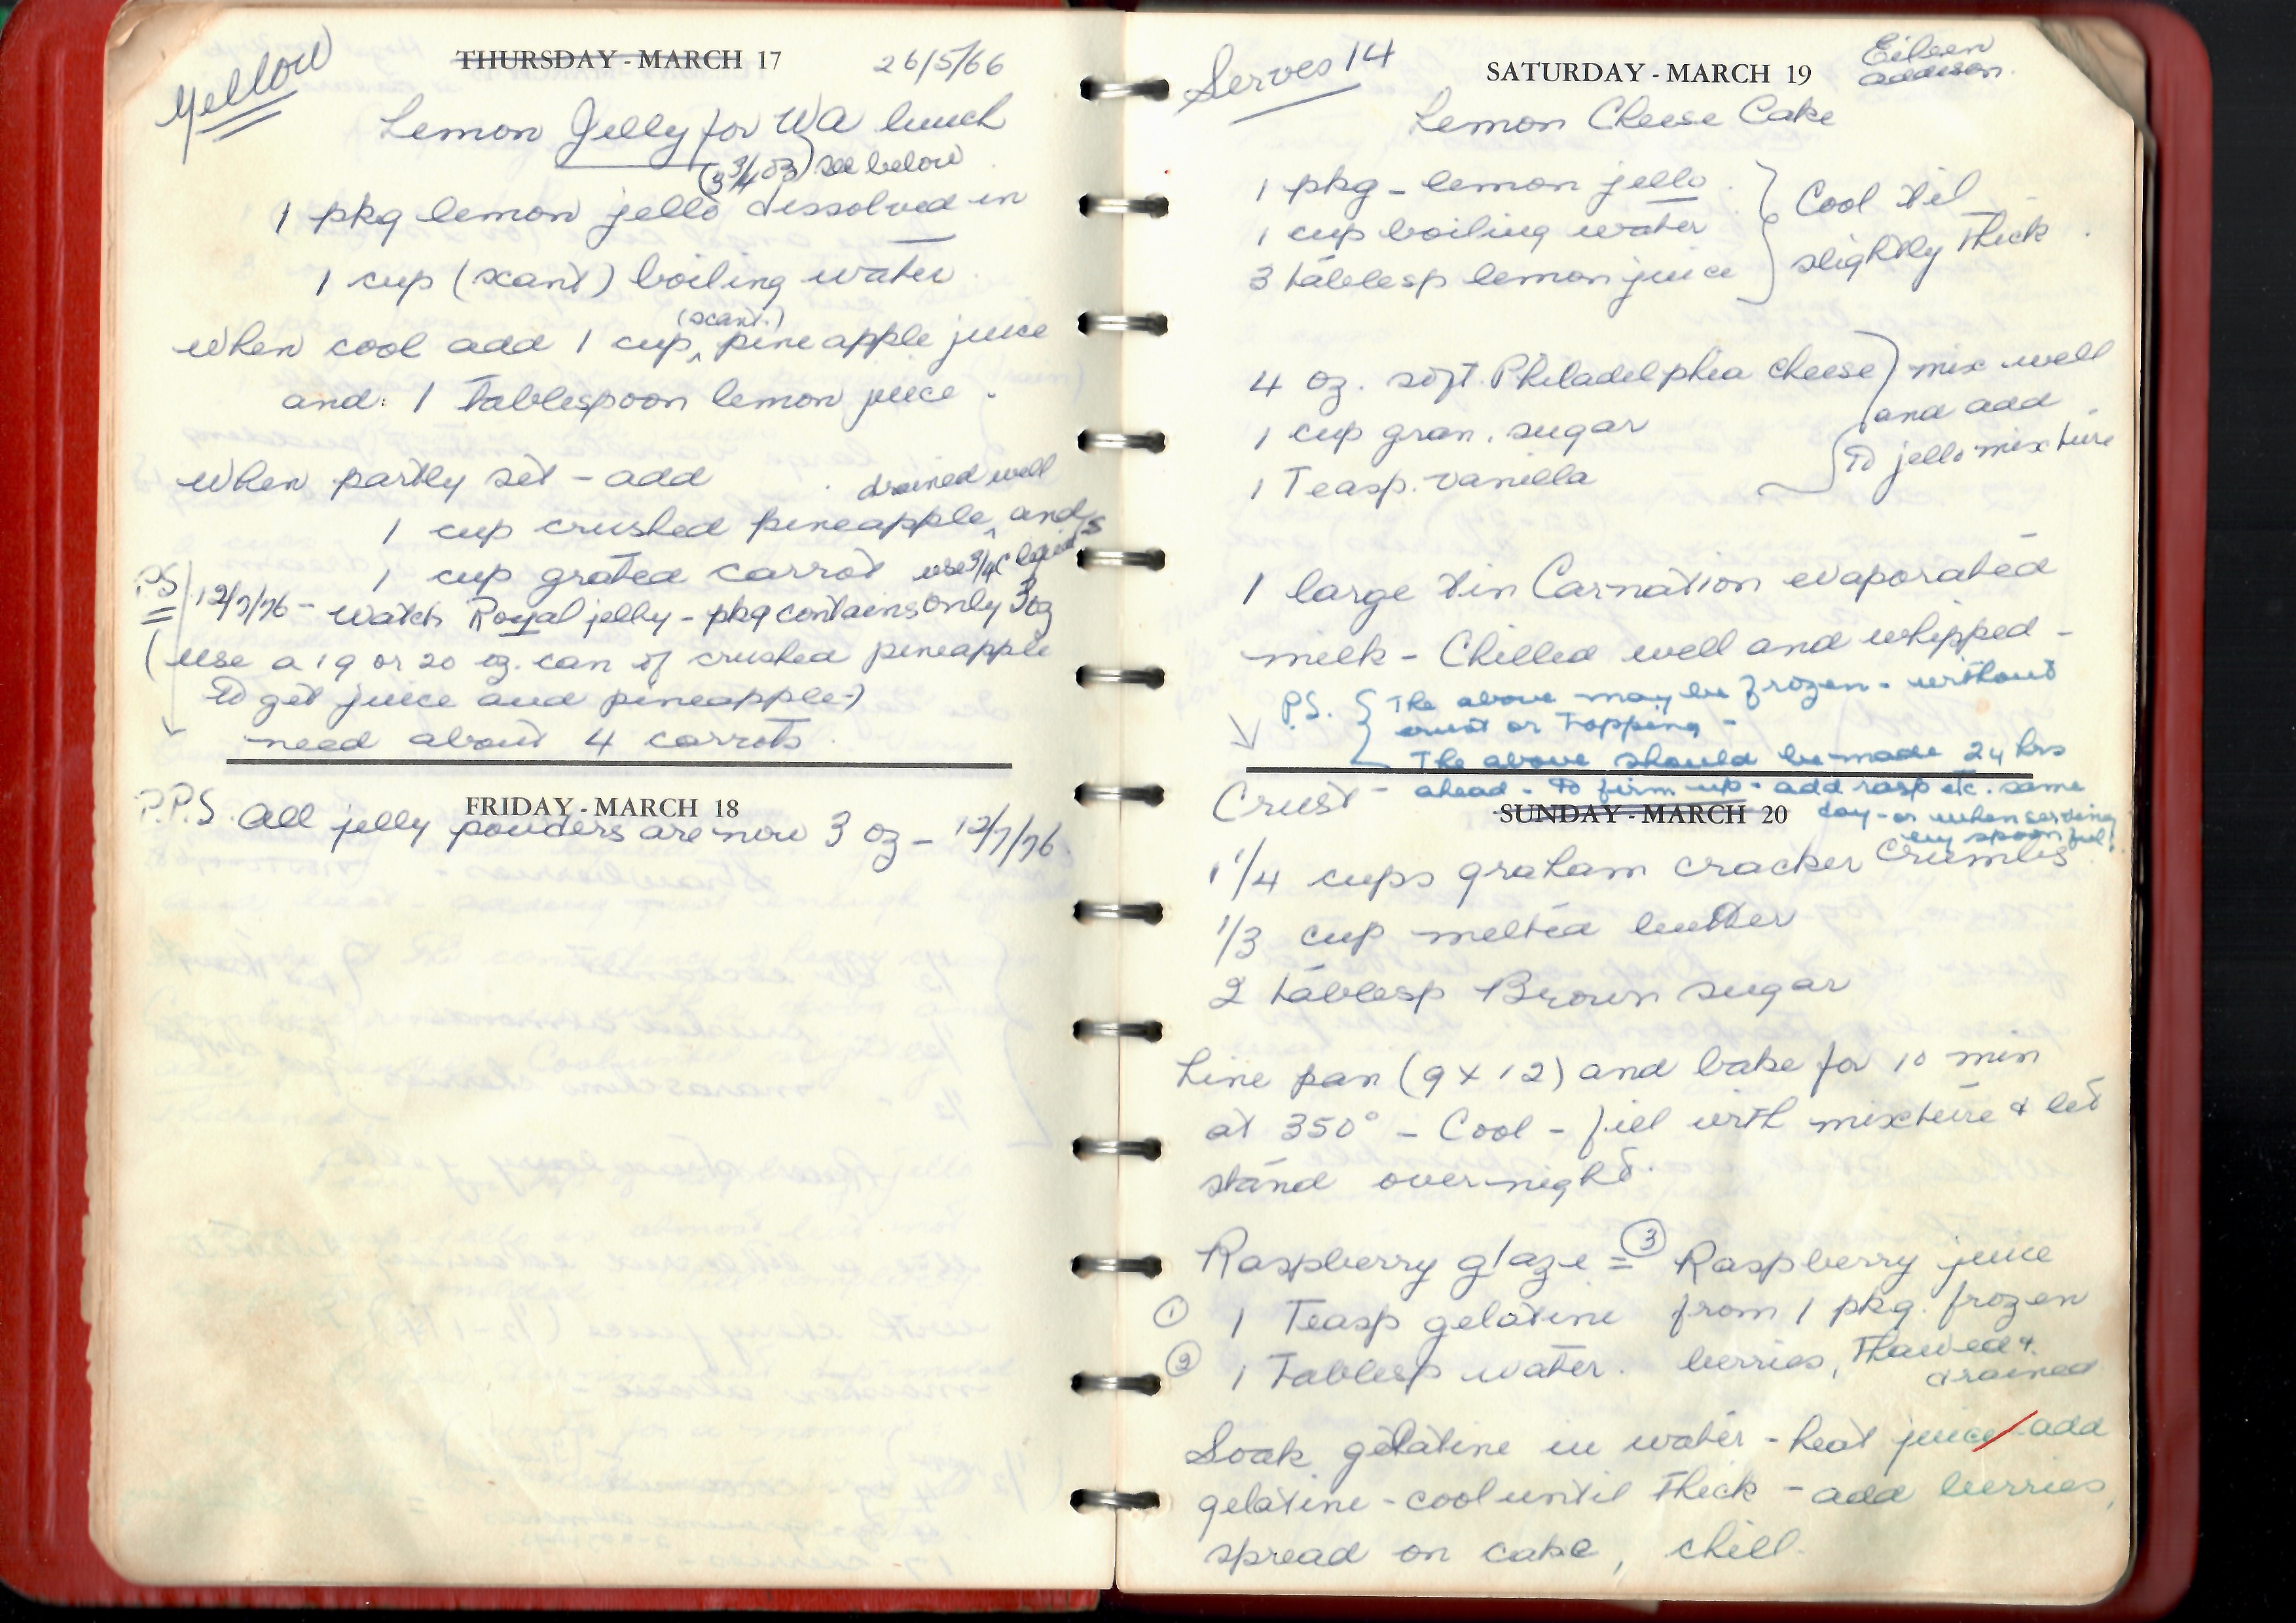 Yellow
THURSDAY - MARCH 17
26/5/66
Lemon Jelly for WA lunch
(3 3/4 oz) see below
1 pkg lemon jello dissolved in
1 cup (scant) boiling water
(scant.)
when cool add 1 cup pineapple juice
and 1 Tablespoon lemon juice.
When partly set - add
drained well
1 cup crushed pineapple, and
1 cup grated carrot use 3/4 c liquids
PS 12/7/76 - Watch Royal jelly - pkg contains only 3 oz
(use a 19 or 20 oz. can of crushed pineapple
to get juice and pineapple)
need about 4 carrots.
FRIDAY - MARCH 18
P.P.S. All jelly powders are now 3 oz - 12/7/76.
Serves 14
SATURDAY - MARCH 19
Eileen
Addison.
Lemon Cheese Cake
1 pkg - lemon jello.
1 cup boiling water
3 tablesp lemon juice
Cool til
slightly thick.
4 oz. soft Philadelphia cheese
1 cup gran. sugar
1 Teasp. vanilla
mix well
and add
to jello mixture
1 large tin Carnation evaporated
milk - Chilled well and whipped -
P.S. The above may be frozen - without
crust or Topping -
The above should be made 24 hrs
ahead - to firm up - add rasp etc. same
day - or when serving
by spoon ful!
Crust -
SUNDAY - MARCH 20
1 1/4 cups graham cracker crumbs
1/3 cup melted butter
2 tablesp Brown sugar
Line pan (9 x 12) and bake for 10 min
at 350° - Cool - fill with mixture & let
stand overnight.
Raspberry glaze = ③ Raspberry juice
① 1 Teasp gelatine from 1 pkg. frozen
② 1 Tablesp water. berries, Thawed &
drained
Soak gelatine in water - heat juice / add
gelatine - cool until thick - add berries,
spread on cake, chill.